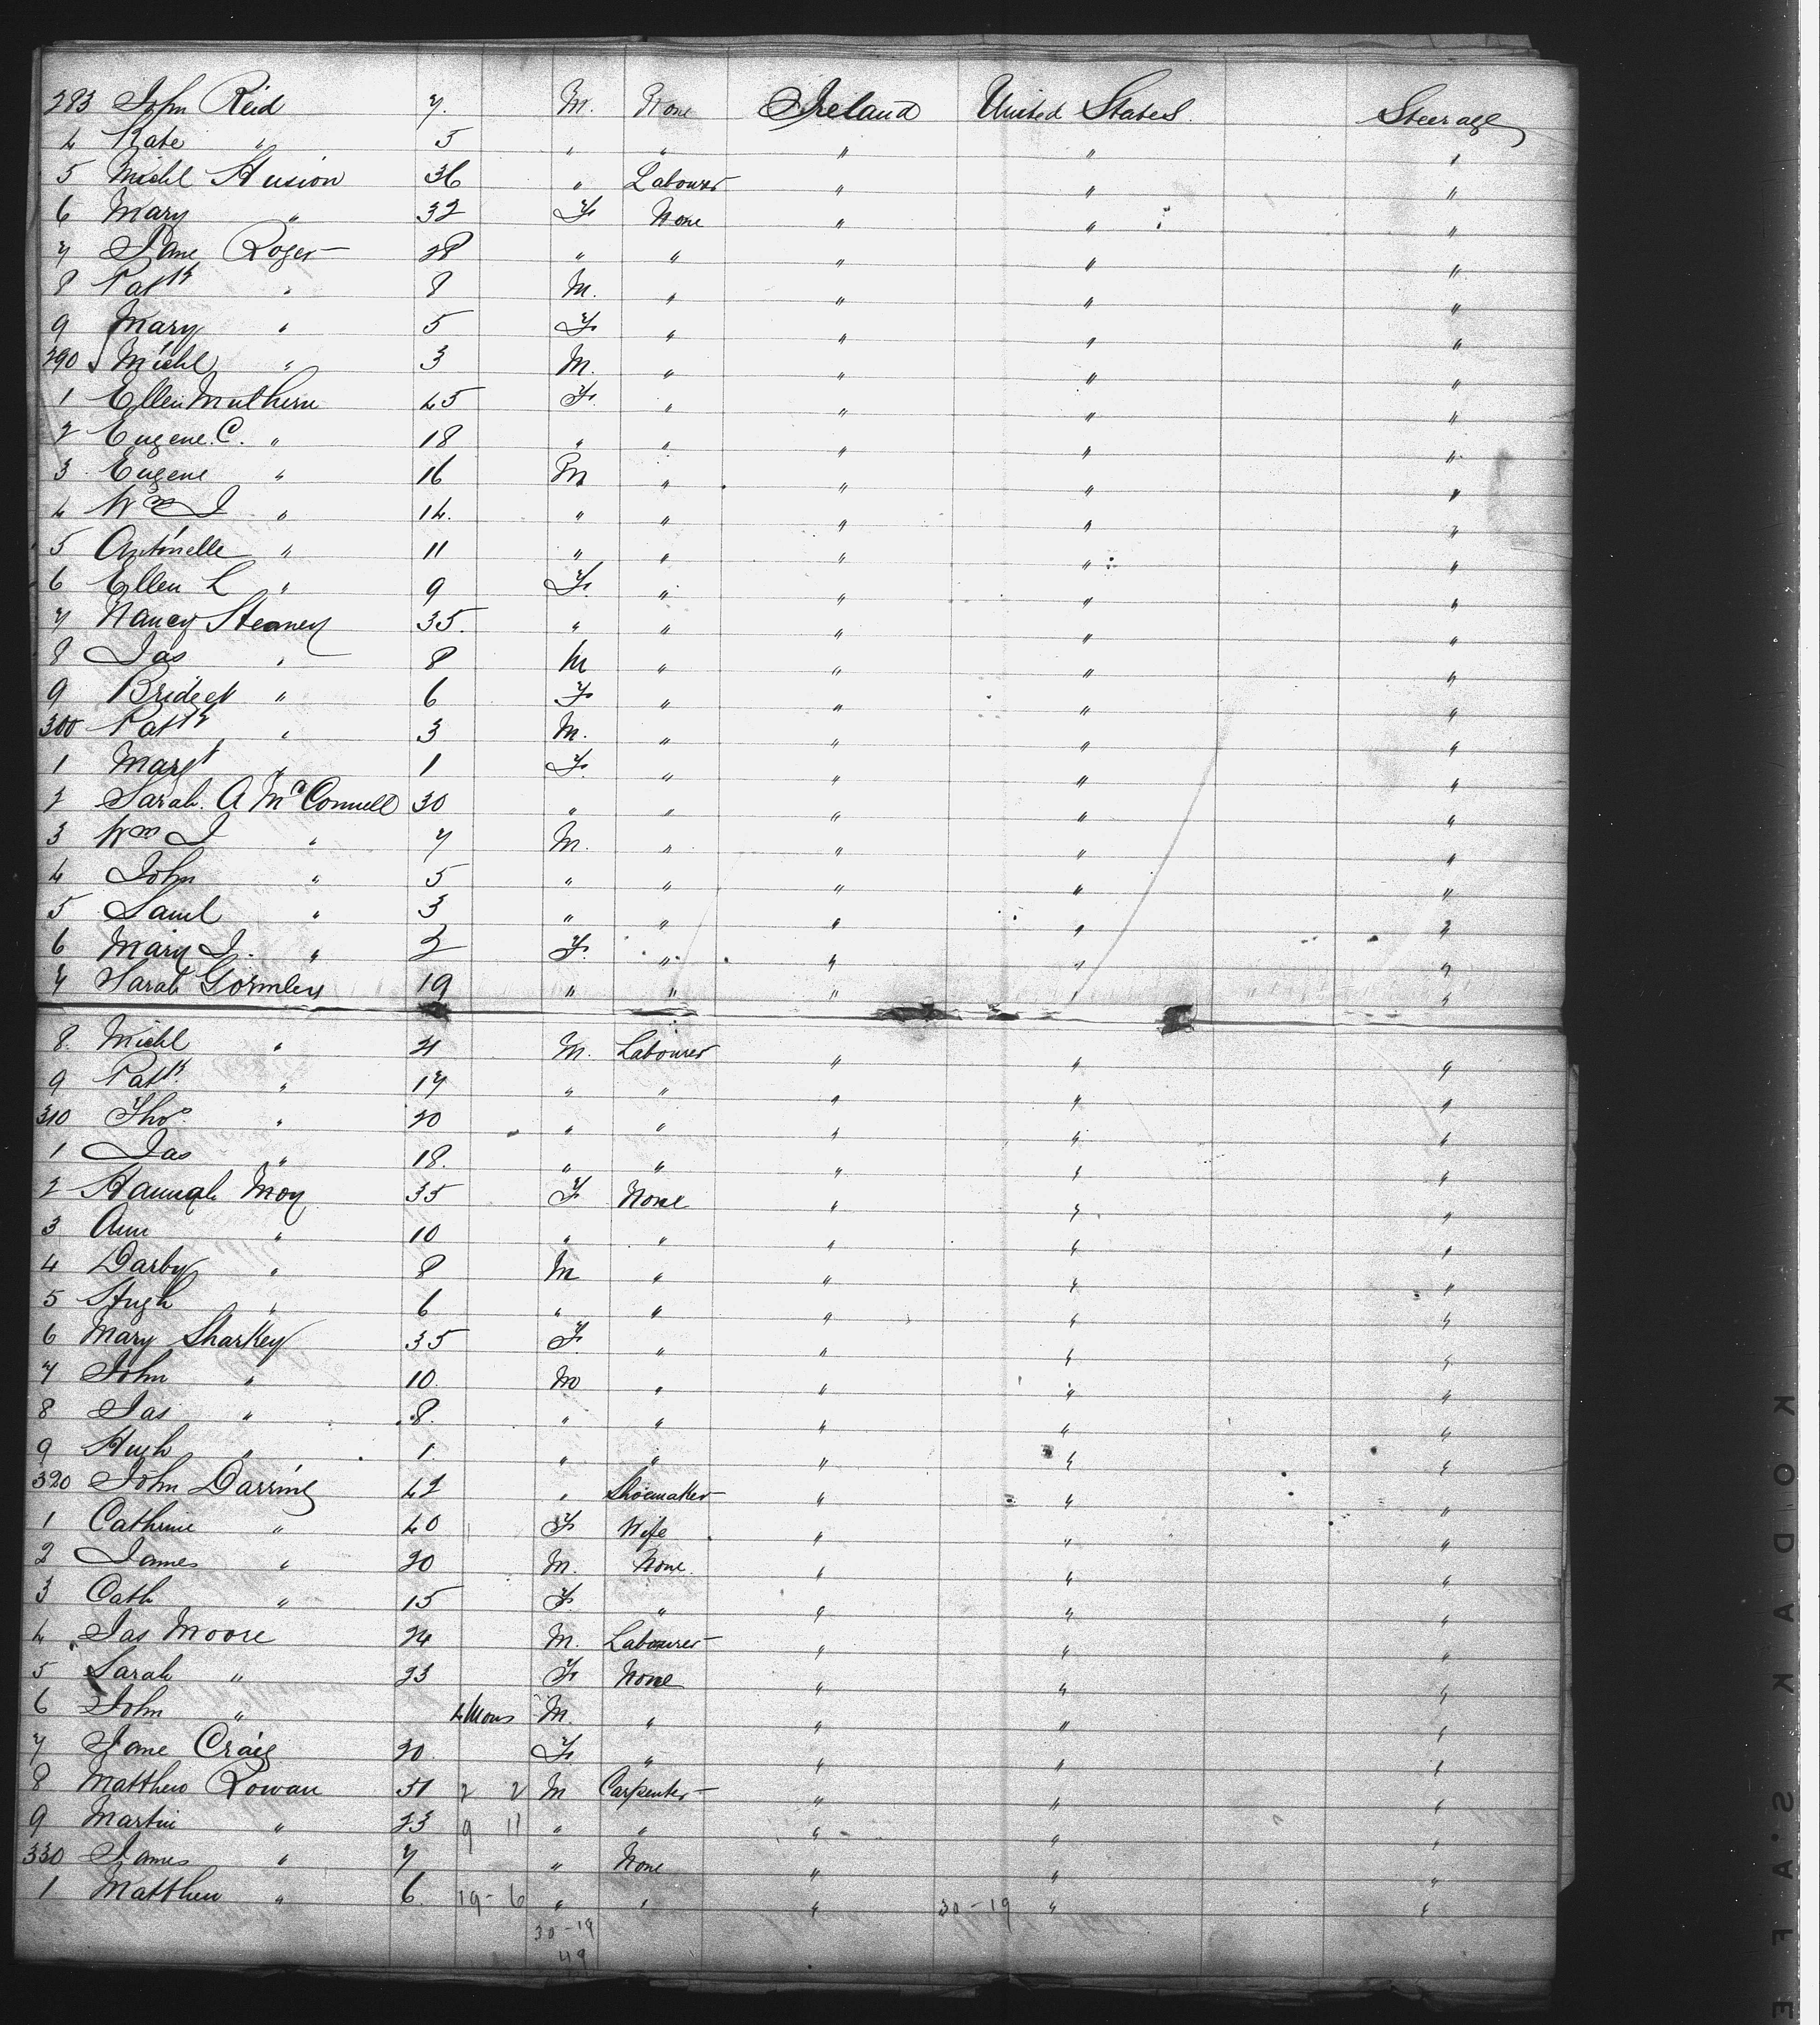 283 John Reid 7. M. None Ireland United States Steerage
4 Kate " 5 " " " " "
5 Michl Husion 36 " Labourer " " "
6 Mary " 32 F. None " " "
7 Jane Roger 28 " " " " "
8 Patk " 8 M. " " " "
9 Mary " 5 F. " " " "
290 Michl " 3 M. " " " "
1 Ellen Mulhern 45 F. " " " "
2 Eugene. C. " 18 " " " " "
3 Eugene " 16 M " " " "
4 Wm J " 14. " " " " "
5 Antonelle " 11 " " " " "
6 Ellen L " 9 F. " " " "
7 Nancy Steaney 35. " " " " "
8 Jas " 8 M " " " "
9 Bridget " 6 F. " " " "
300 Patk " 3 M. " " " "
1 Margt " 1 F. " " " "
2 Sarah. A McConnell 30 " " " " "
3 Wm J " 7 M. " " " "
4 John " 5 " " " " "
5 Saml " 3 " " " " "
6 Mary J. " 2 F. " " " "
7 Sarah Gormley 19 " " " " "
8. Michl " 21 M. Labourer " " "
9 Patk. " 17 " " " " "
310 Thos. " 20 " " " " "
1 Jas " 18. " " " " "
2 Hannah Moy 35 F. None " " "
3 Ann " 10 " " " " "
4 Darby " 8 M " " " "
5 Hugh " 6 " " " " "
6 Mary Sharkey 35 F. " " " "
7 John " 10. M " " " "
8 Jas " 8. " " " " "
9 Hugh " 1. " " " " "
320 John Darring 42 " Shoemaker " " "
1 Cathrine " 40 F. Wife " " "
2 James " 20 M. None. " " "
3 Cath " 15 F. " " " "
4 Jas Moore 24 M. Labourer " " "
5 Sarah " 23 F. None " " "
6 John " 4 Mons M. " " " "
7 Jane Craig 20. F. " " " "
8 Matthew Rowan 51 2 2 M Carpenter " " "
9 Martin " 23 9 11 " " " " "
330 James " 7 " None " " "
1 Matthew " 6. 19-6 " " " 30-19 " "
30-19
49
KODAK S.'A F E